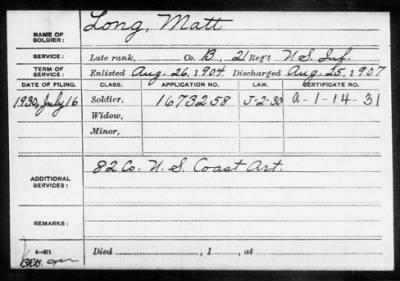 NAME OF SOLDIER: Long, Matt
SERVICE: Late rank, Co. B, 21 Reg't U.S. Inf.
TERM OF SERVICE: Enlisted Aug. 26, 1904. Discharged Aug. 25, 1907
DATE OF FILING. CLASS. APPLICATION NO. LAW. CERTIFICATE NO.
1930, July 16 Soldier, 1673258 J-2-30 A-1-14-31
Widow,
Minor,
ADDITIONAL SERVICES: 82 Co. U. S. Coast Art.
REMARKS:
Died , 1 , at